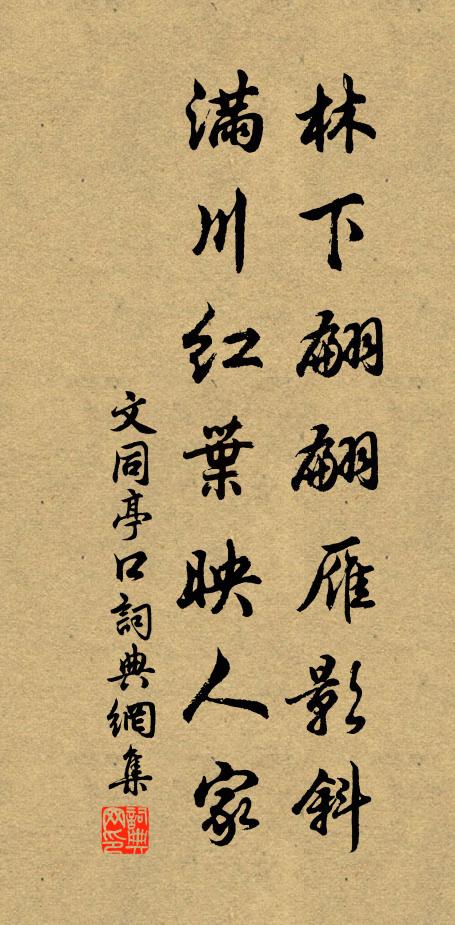 林下翩翩雁影斜
滿川紅葉映人家
文同亭口詞典網集
詞典网印